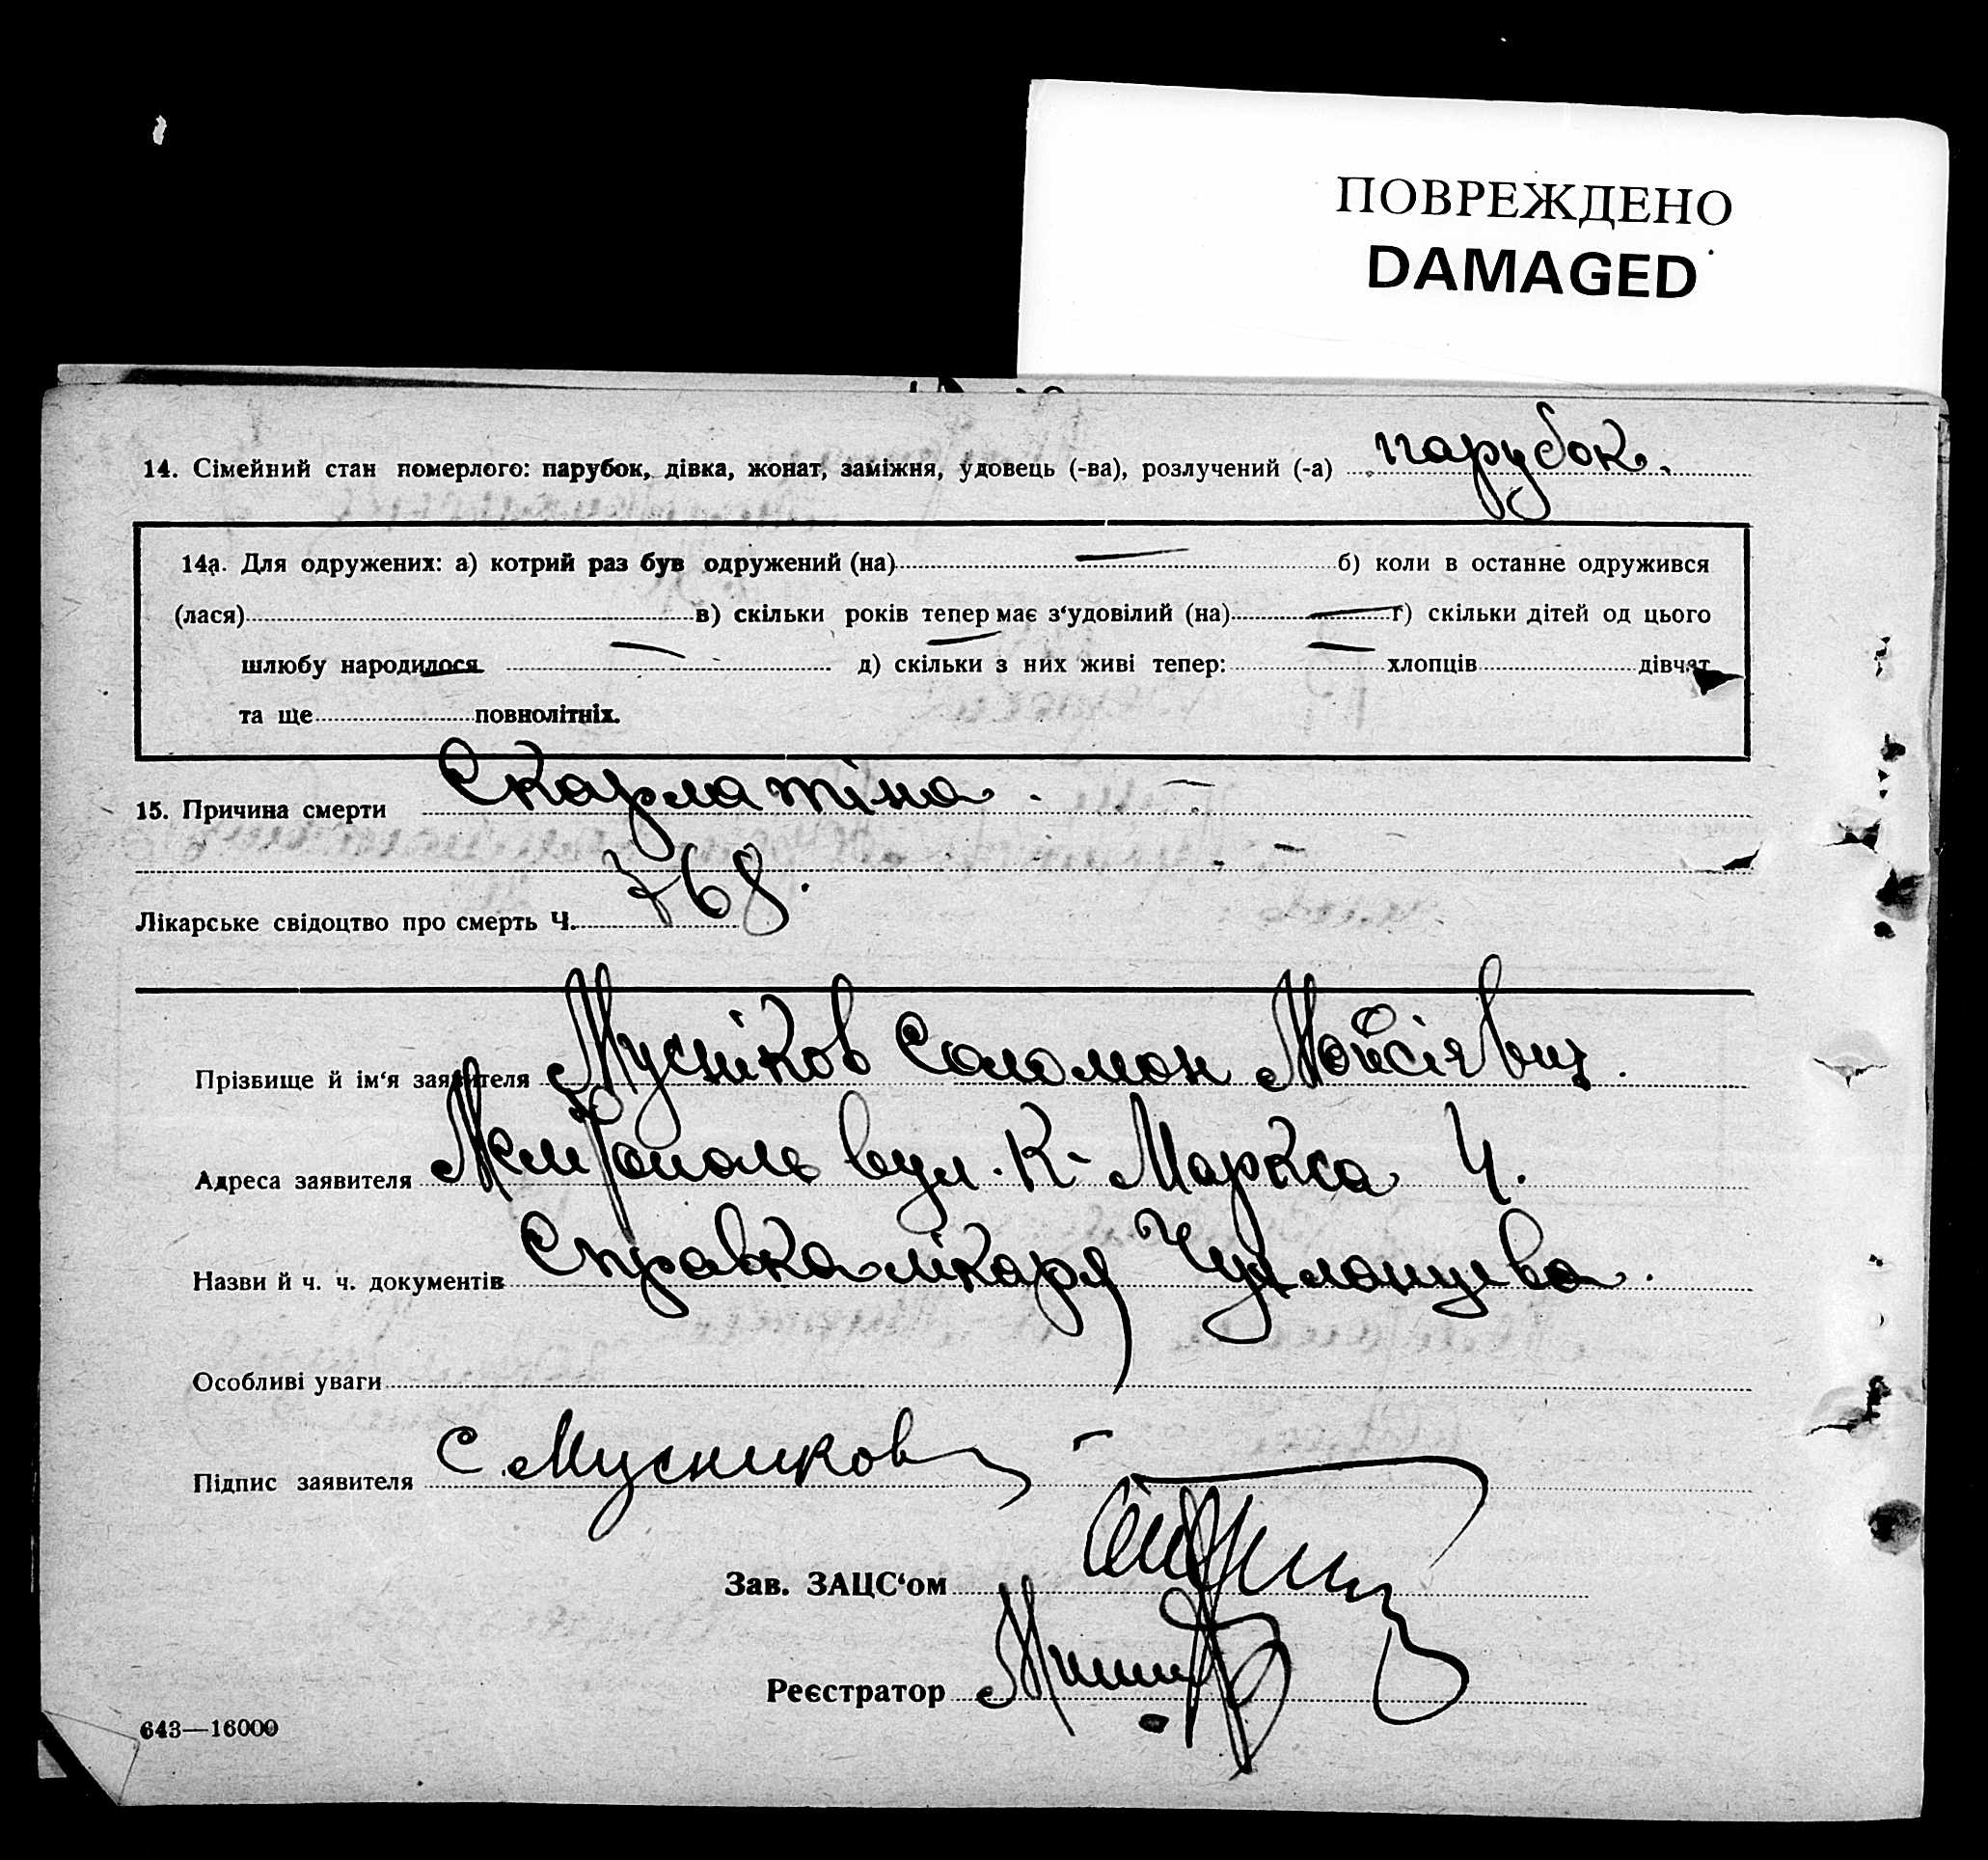 ПОВРЕЖДЕНО
DAMAGED
14. Сімейний стан померлого: парубок, дівка, жонат, заміжня, удовець (-ва), розлучений (-а) парубок.
14а. Для одружених: а) котрий раз був одружений (на) — б) коли в останнє одружився
(лася) в) скільки років тепер має з‘удовілий (на) — г) скільки дітей од цього
шлюбу народилося — д) скільки з них живі тепер: — хлопців — дівчат
та ще повнолітніх.
15. Причина смерти Скарлатіна.
Лікарське свідоцтво про смерть Ч. 768.
Прізвище й ім‘я заявителя Мусніков Соломон Мойсієвич.
Адреса заявителя Мелітополь вул. К-Маркса Ч.
Назви й ч. ч. документів Справка лікаря
Особливі уваги
Підпис заявителя С. Мусников
Зав. ЗАЦС‘ом
Реєстратор
643—16000